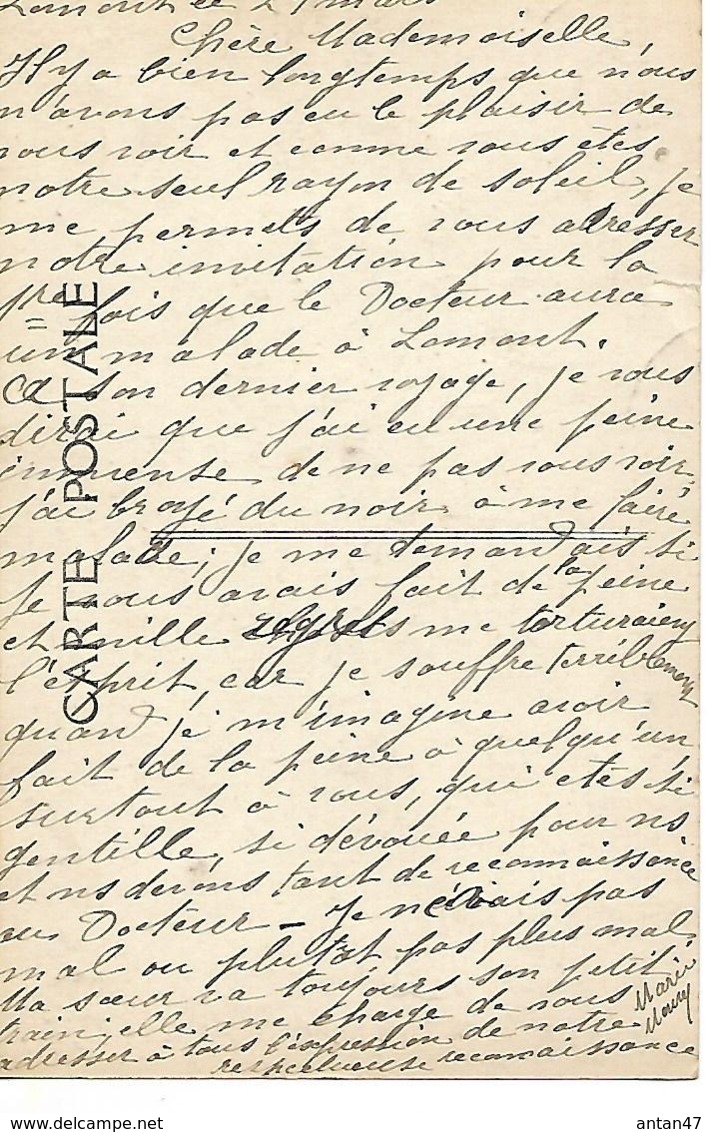 Lomont le 27 mars
Chère Mademoiselle,
Il y a bien longtemps que nous
n'avons pas eu le plaisir de
vous voir et comme vous êtes
notre seul rayon de soleil, je
me permets de vous adresser
notre invitation pour la
1re fois que le Docteur aura
un malade à Lomont.
A son dernier voyage, je vous
dirai que j'ai eu une peine
immense de ne pas vous voir,
j'ai broyé du noir à me faire
malade; je me demandais si
je vous avais fait de la peine
et mille regrets me torturaient
l'esprit, car je souffre terriblement
quand je m'imagine avoir
fait de la peine à quelqu'un,
surtout à vous, qui êtes si
gentille, si dévouée pour ns
et ns devons tant de reconnaissance
au Docteur - Je ne vais pas
mal ou plutôt pas plus mal.
Ma sœur va toujours son petit
train; elle me charge de vous
adresser à tous l'expression de notre
respectueuse reconnaissance
Marie
CARTE POSTALE
antan47